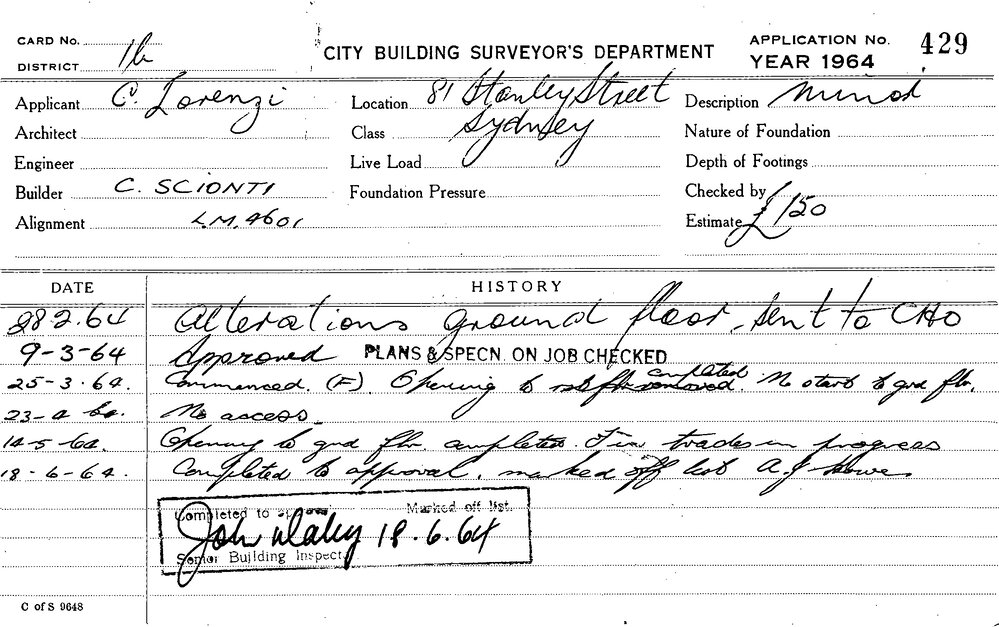 CARD No.
DISTRICT 1b
CITY BUILDING SURVEYOR'S DEPARTMENT
APPLICATION No. 429
YEAR 1964
Applicant C. Lorenzi
Location 81 Stanley Street
Sydney
Description Minor
Architect
Class
Nature of Foundation
Engineer
Live Load
Depth of Footings
Builder C. SCIONTI
Foundation Pressure
Checked by
Alignment L.M. 4601
Estimate £150
DATE HISTORY
28.2.64 Alterations ground floor. Sent to CHO
9-3-64 Approved PLANS & SPECN. ON JOB CHECKED
25-3-64. Commenced. (F) Opening to flr completed. No start to grd flr.
23-4 64. No access.
14-5-64. Opening to grd flr completed. trades in progress
18-6-64. Completed to approval. marked off list A.J.
Completed to Marked off list.
John Daley 18.6.64
Senior Building Inspect.
C of S 9648